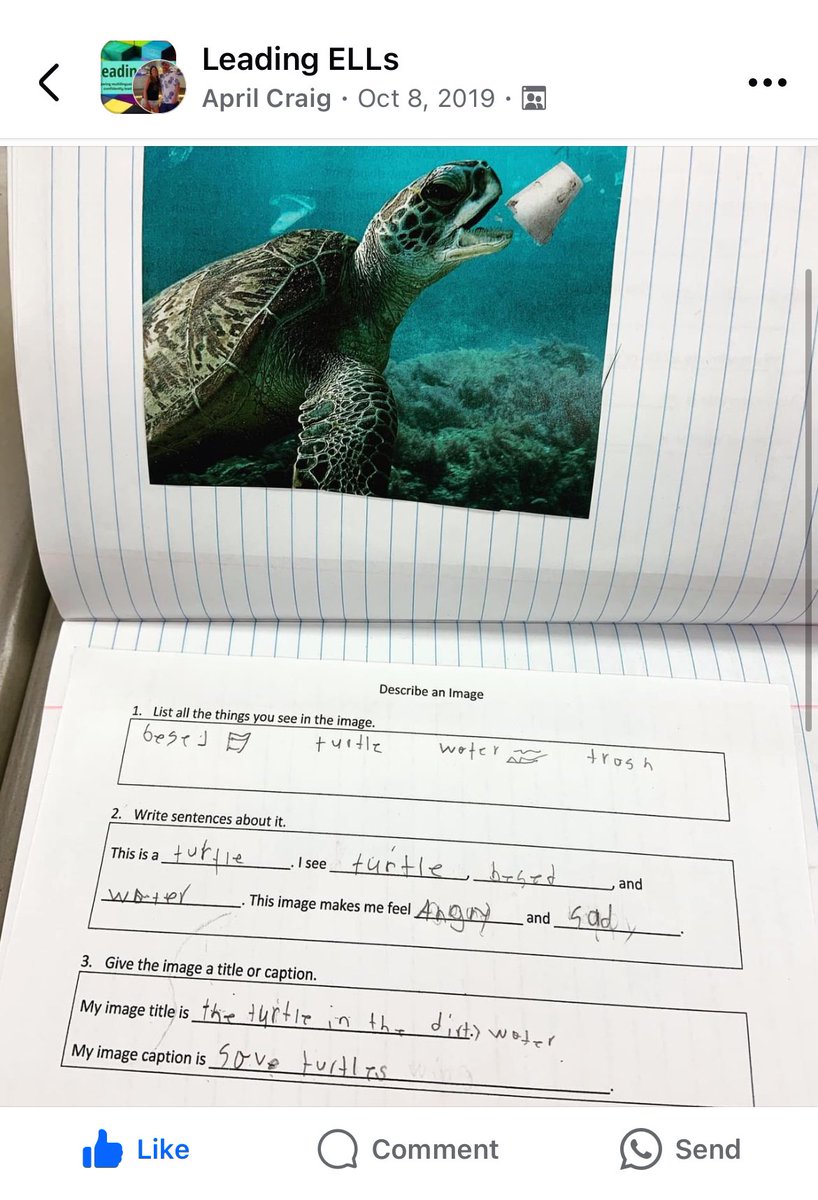 Leading ELLs
April Craig · Oct 8, 2019 ·
Describe an Image
1. List all the things you see in the image.
turtle water trash
2. Write sentences about it.
This is a turtle. I see turtle, besed, and
water. This image makes me feel Angry and sad.
3. Give the image a title or caption.
My image title is the turtle in the dirty water
My image caption is Save turtles.
Like Comment Send